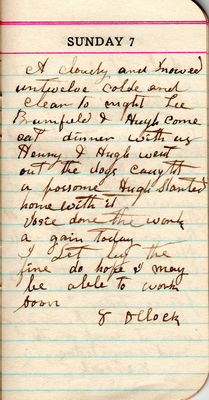 SUNDAY 7
A cloudy and snowed
untwelve colde and
clean to night Lee
Brumfield & Hugh come
eat dinner with us
Henry & Hugh went
out the dogs caught
a possome Hugh started
home with it
done the work
a gain today
I set by the
fire do hope I may
be able to work
soon
8 Oclock